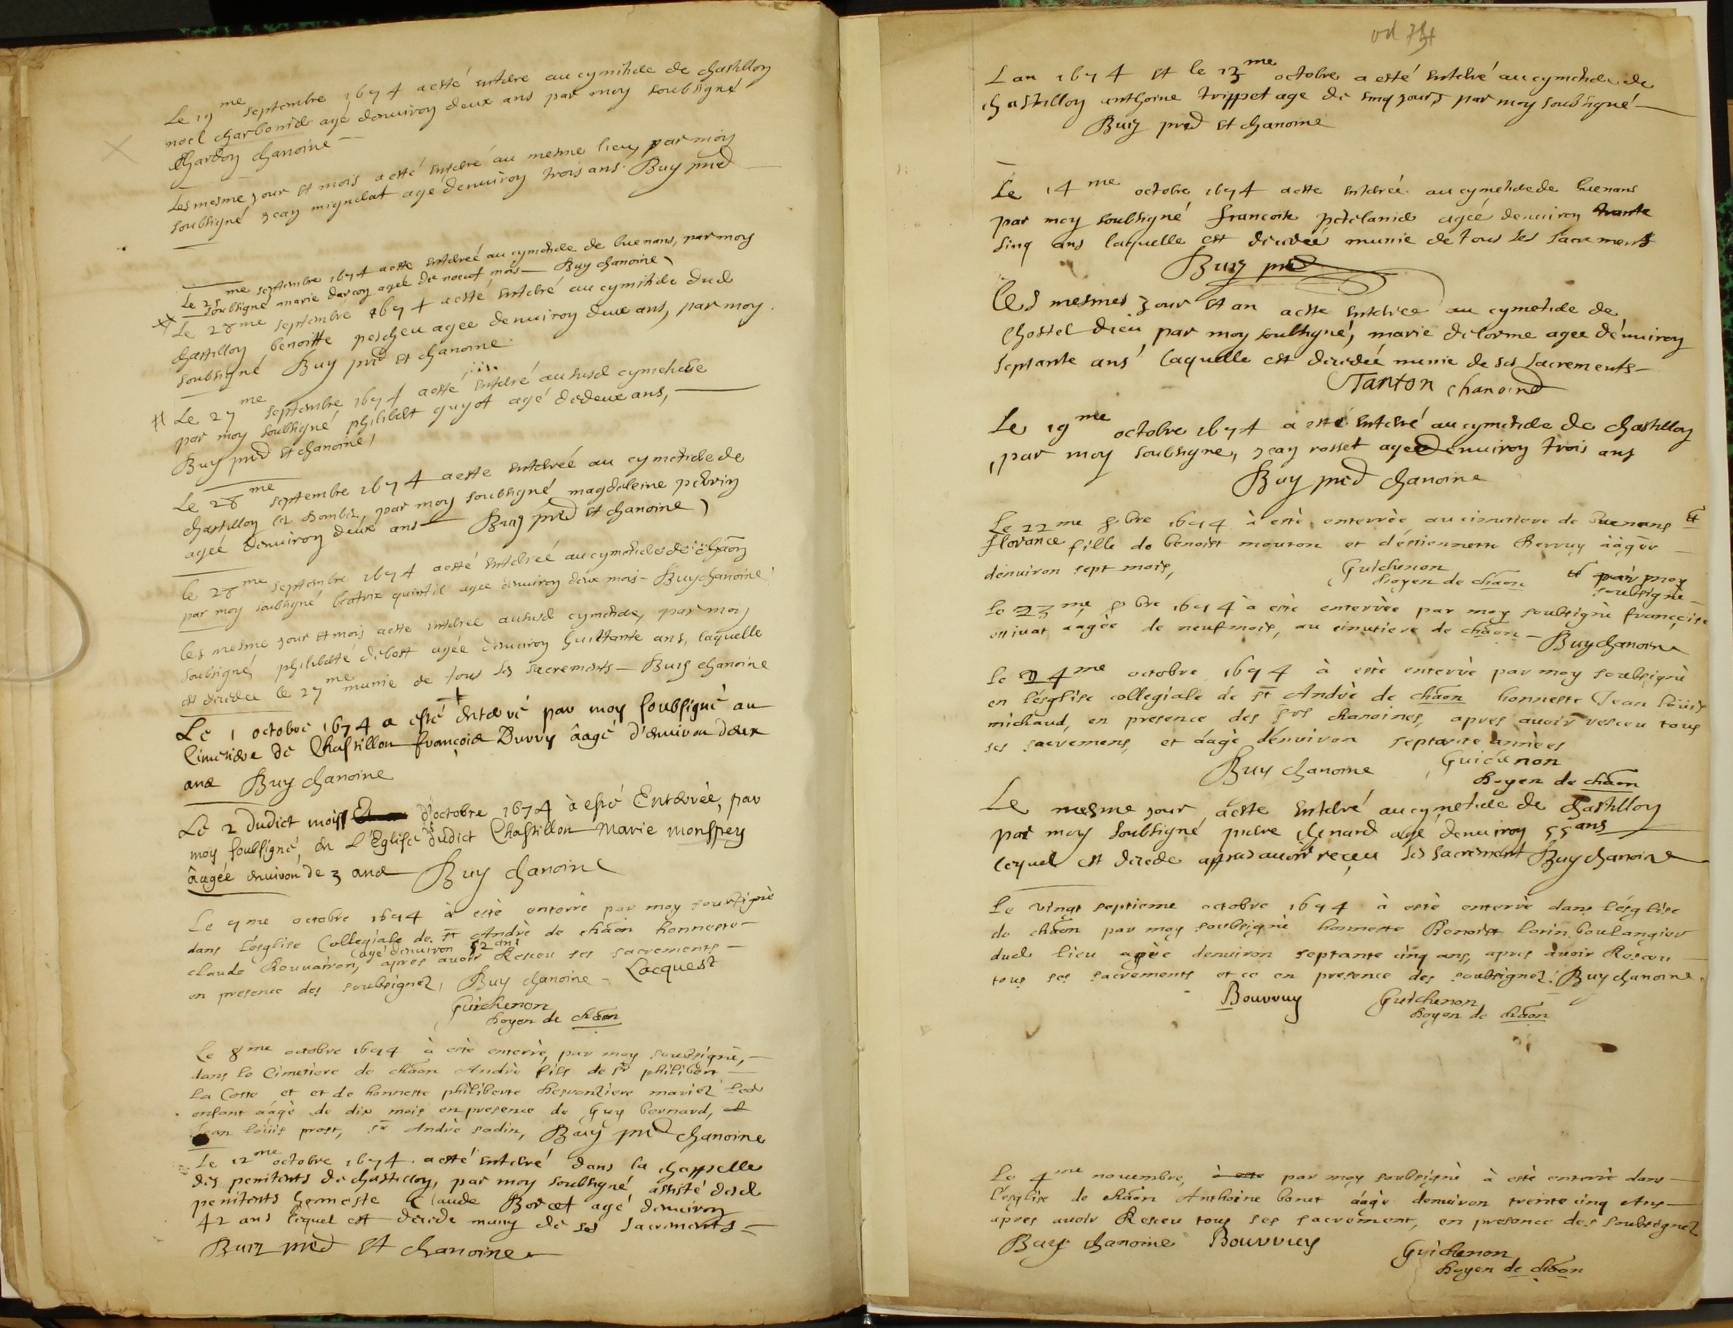 Le 19me septembre 1674 a esté enteré au cymitiere de chastillon
noel charbonier agé denviron deux ans par moy soubsigné
chanoine
Les mesme jour et mois a esté enteré au mesme lieu par moy
soubsigné jean mignelat agé denviron trois ans. Buy pred
Le 25me septembre 1674 a esté enterée au cymetiere de buenans, par moy
soubsigné marie darcoy agée de neouf mois Buy chanoine
Le 28me septembre 1674 a esté enteré au cymitiere dud
chastillon benoitte pescheu agee denviron deux ans, par moy
soubsigné Buy pred et chanoine
Le 27me septembre 1674 a esté enteré au susd cymetiere
par moy soubsigné philibert guyot agé de deux ans,
Buy pred et chanoine
Le 28me septembre 1674 a esté enterée au cymetiere de
chastillon les Dombes, par moy soubsigné magdeleine perrin
agée denviron deux ans Buy pred et chanoine
le 28me septembre 1674 a esté enterée au cymetiere de chãon
par moy soubsigné beatrix quintil agee denviron deux mois - Buy chanoine
les mesme jour et mois a esté enterée au susd cymetiere, par moy
soubsigné, philiberte debost agée denviron huittante ans, laquelle
est decedee le 27me munie de tous les sacrements - Buy chanoine
Le 1 octobre 1674 a esté enterré par moy soubsigné au
Cimetiere de Chastillon françois Buvry âagé d'environ deux
ans Buy chanoine
Le 2 dudict mois d'octobre 1674 à esté Enterrée, par
moy soubsigné, en l'Eglise dudict Chastillon Marie monspey
âagée environ de 3 ans Buy chanoine
Le 4me octobre 1674 à esté enterré par moy soubsigné
dans l'esglise Collegiale de st André de chãon honneste
agé denviron 52 ans
claude Rouvairon, apres avoir Receu ses sacrements
en presence des soubsignez, Buy chanoine - Lacquest
Guichenon
doyen de chãon
Le 8me octobre 1674 à esté enterré, par moy soubsigné,
dans le Cimetiere de chãon André fils de sr philibert
La Coste et et de honneste philiberte mariez led
enfant âagé de dix mois en presence de Guy bernard, et
Jean loüis prost, sr André sadin, Buy pred chanoine
Le 12me octobre 1674 a esté enteré dans la chappelle
des penitents de chastillon, par moy soubsigné assisté desd
penitents honneste Claude Borcet agé denviron
42 ans lequel est decede muny de ses sacrements
Buy pred et chanoine
Lan 1674 et le 13me octobre a esté enteré au cymetiere de
chastillon anthoine trippet age de sinq jours par moy soubsigné
Buy pred et chanoine
Le 14me octobre 1674 a esté enterée au cymetiere de buenans
par moy soubsigné francoise agée denviron trante
sinq ans laquelle est decedée munie de tous ses sacrements
Buy pred
Les mesmes jour et an a esté enterée au cymetiere de
lhostel dieu, par moy soubsigné, marie delorme agee denviron
septante ans, laquelle est decedée munie de ses sacrements
Tanton chanoine
Le 19me octobre 1674 a esté enteré au cymetiere de chastillon
par moy soubsigne, jean rosset agé denviron trois ans
Buy pred chanoine
Le 22me 8bre 1674 à esté enterrée au cimetiere de Buenans et
florance fille de benoist mouton et d'estiennette âagée
denviron sept mois, Guichenon et par moy
doyen de chãon soubsigné
Le 23me 8bre 1674 à esté enterrée par moy soubsigné françoise
aagée de neuf mois, au cimetiere de chãon - Buy chanoine
Le 24me octobre 1674 à esté enterré par moy soubsigné
en l'esglise collegiale de st André de chãon honneste Jean loüis
michaud, en presence des srs chanoines, apres avoir receu tous
ses sacremens et âagé denviron septante années
Buy chanoine Guichenon
doyen de chãon
Le mesme jour a esté enteré au cymetiere de chastillon
par moy soubsigné piere chenard agé denviron 55 ans
lequel est decede appres avoir reçeu ses sacrement Buy chanoine
Le vingt septieme octobre 1674 à esté enterré dans l'esglise
de chãon par moy soubsigné honneste Benoist lorin boulangier
dud lieu agée denviron septante cinq ans, apres avoir Receu
tous ses sacrements et ce en presence des soubsignez. Buy chanoine
Bouvvuy Guichenon
doyen de chãon
Le 4me novembre, à esté par moy soubsigné à esté enterré dans
l'esglise de chãon Anthoine banet âagé denviron trente cinq Ans
apres avoir Receu tous ses sacrement, en presence des soubsignez
Buy chanoine Bouvvuy Guichenon
doyen de chãon